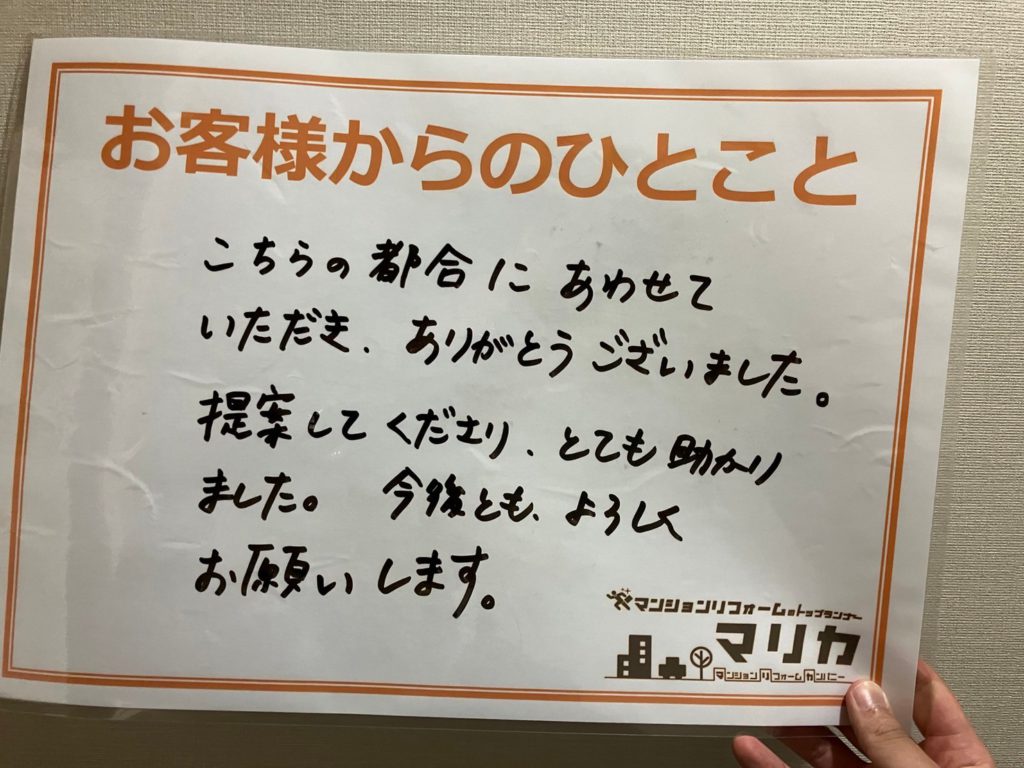 お客様からのひとこと
こちらの都合にあわせて
いただき、ありがとうございました。
提案してくださり、とても助かり
ました。 今後とも、よろしく
お願いします。
マンションリフォームのトップランナー
マリカ
マンションリフォームカンパニー